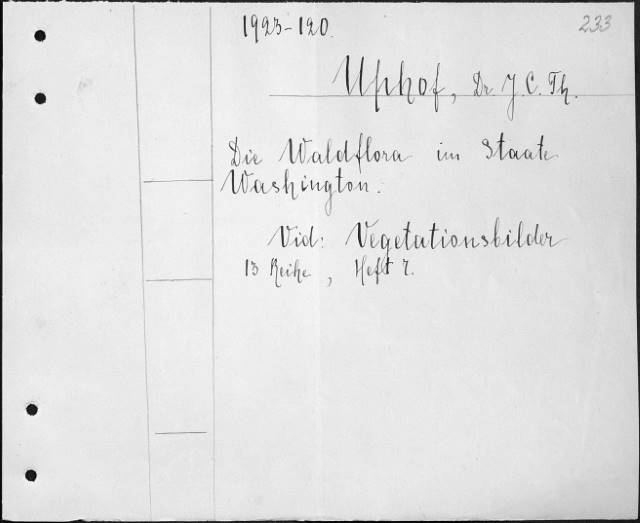 1923-120.
233
Uphof, Dr. J. C. Th.
Die Waldflora im Staate
Washington.
Vid: Vegetationsbilder
13 Reihe, Heft 7.